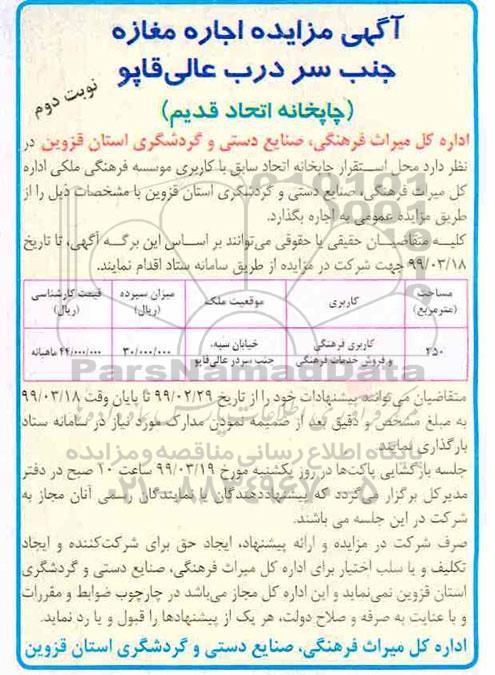 آگهی مزایده اجاره مغازه
جنب سر درب عالی‌قاپو
نوبت دوم
(چاپخانه اتحاد قدیم)
اداره کل میراث فرهنگی، صنایع دستی و گردشگری استان قزوین در
نظر دارد محل استقرار چاپخانه اتحاد سابق با کاربری موسسه فرهنگی ملکی اداره
کل میراث فرهنگی، صنایع دستی و گردشگری استان قزوین با مشخصات ذیل را از
طریق مزایده عمومی به اجاره بگذارد.
کلیه متقاضیان حقیقی یا حقوقی می‌توانند بر اساس این برگه آگهی، تا تاریخ
۹۹/۰۳/۱۸ جهت شرکت در مزایده از طریق سامانه ستاد اقدام نمایند.
مساحت (مترمربع) کاربری موقعیت ملک میزان سپرده (ریال) قیمت کارشناسی (ریال)
۲۵۰ کاربری فرهنگی و فروش خدمات فرهنگی خیابان سپه، جنب سردر عالی‌قاپو ۳۰/۰۰۰/۰۰۰ ۴۴/۰۰۰/۰۰۰ ماهیانه
ParsNamadData
متقاضیان می‌توانند پیشنهادات خود را از تاریخ ۹۹/۰۲/۲۹ تا پایان وقت ۹۹/۰۳/۱۸
به مبلغ مشخص و دقیق بعد از ضمیمه نمودن مدارک مورد نیاز در سامانه ستاد
بارگذاری نمایند.
پایگاه اطلاع رسانی مناقصه و مزایده
جلسه بازگشایی پاکت‌ها در روز یکشنبه مورخ ۹۹/۰۳/۱۹ ساعت ۱۰ صبح در دفتر
مدیرکل برگزار می‌گردد که پیشنهاددهندگان یا نمایندگان رسمی آنان مجاز به
۰۲۱-۸۸۳۴۹۶۷۰-۵
شرکت در این جلسه می باشند.
صرف شرکت در مزایده و ارائه پیشنهاد، ایجاد حق برای شرکت‌کننده و ایجاد
تکلیف و یا سلب اختیار برای اداره کل میراث فرهنگی، صنایع دستی و گردشگری
استان قزوین نمی‌نماید و این اداره کل مجاز می‌باشد در چارچوب ضوابط و مقررات
و با عنایت به صرفه و صلاح دولت، هر یک از پیشنهادها را قبول و یا رد نماید.
اداره کل میراث فرهنگی، صنایع دستی و گردشگری استان قزوین